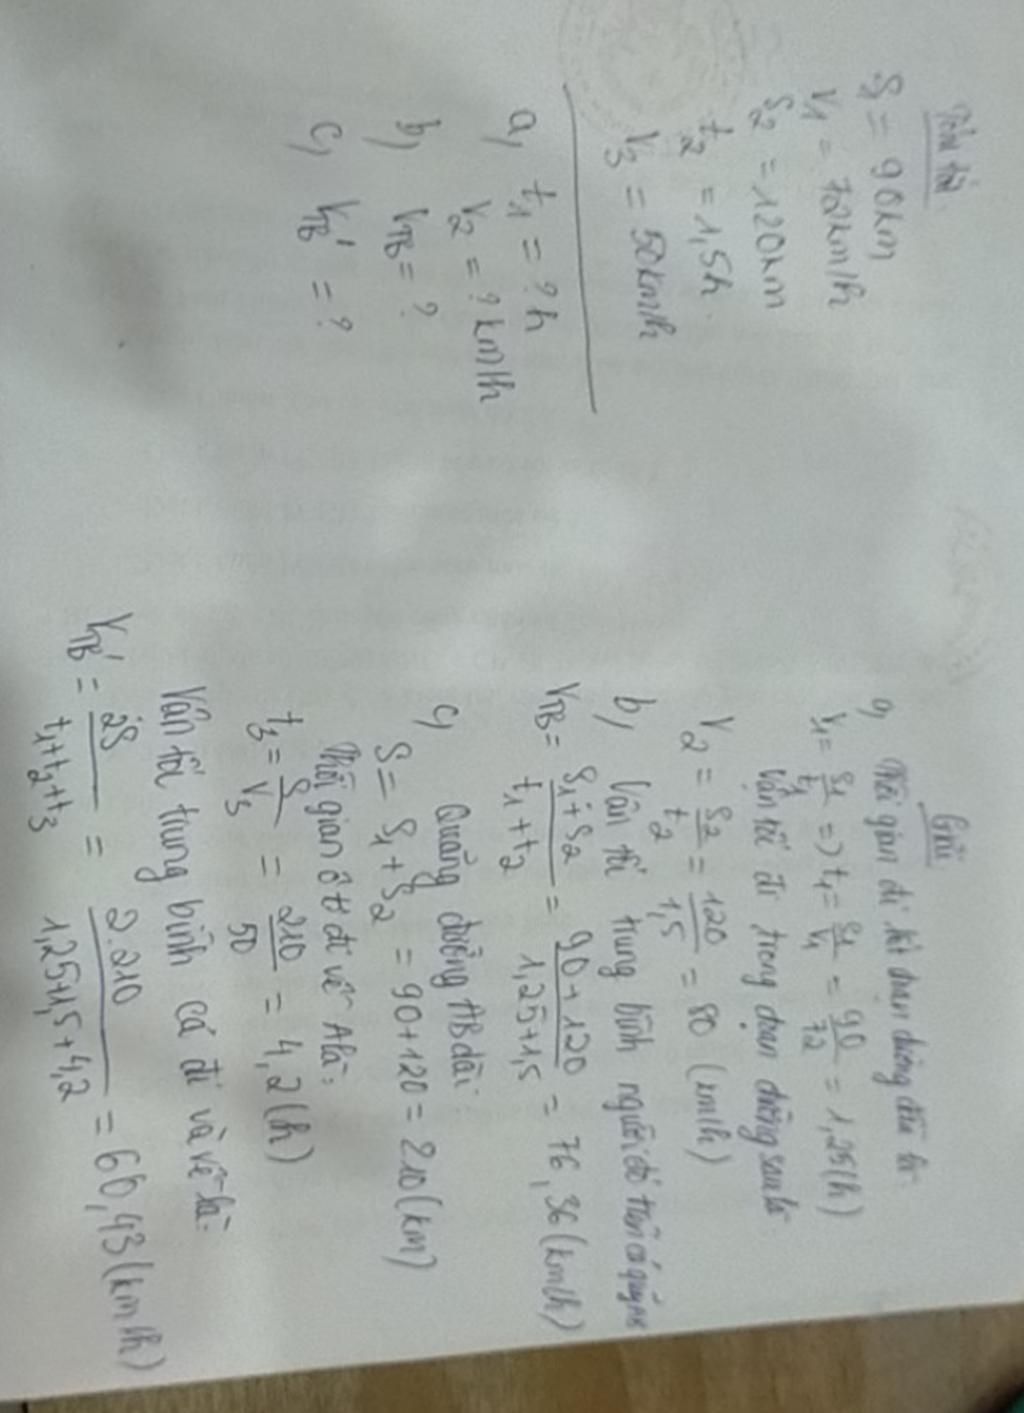 Tóm tắt
S1 = 90km
V1 = 72km/h
S2 = 120km
t2 = 1,5h
V3 = 50km/h
a, t1 = ? h
V2 = ? km/h
b, VTB = ?
c, VTB' = ?
Giải
a, Thời gian đi hết đoạn đường đầu là
V1 = S1/t1 => t1 = S1/V1 = 90/72 = 1,25(h)
Vận tốc đi trong đoạn đường sau là
V2 = S2/t2 = 120/1,5 = 80 (km/h)
b, Vận tốc trung bình người đó trên cả quãng
VTB = S1+S2/t1+t2 = 90+120/1,25+1,5 = 76,36 (km/h)
c, Quãng đường AB dài:
S = S1+S2 = 90+120 = 210(km)
Thời gian ô tô đi về A là:
t3 = S/V3 = 210/50 = 4,2(h)
Vận tốc trung bình cả đi và về là:
VTB' = 2S/t1+t2+t3 = 2.210/1,25+1,5+4,2 = 60,43(km/h)